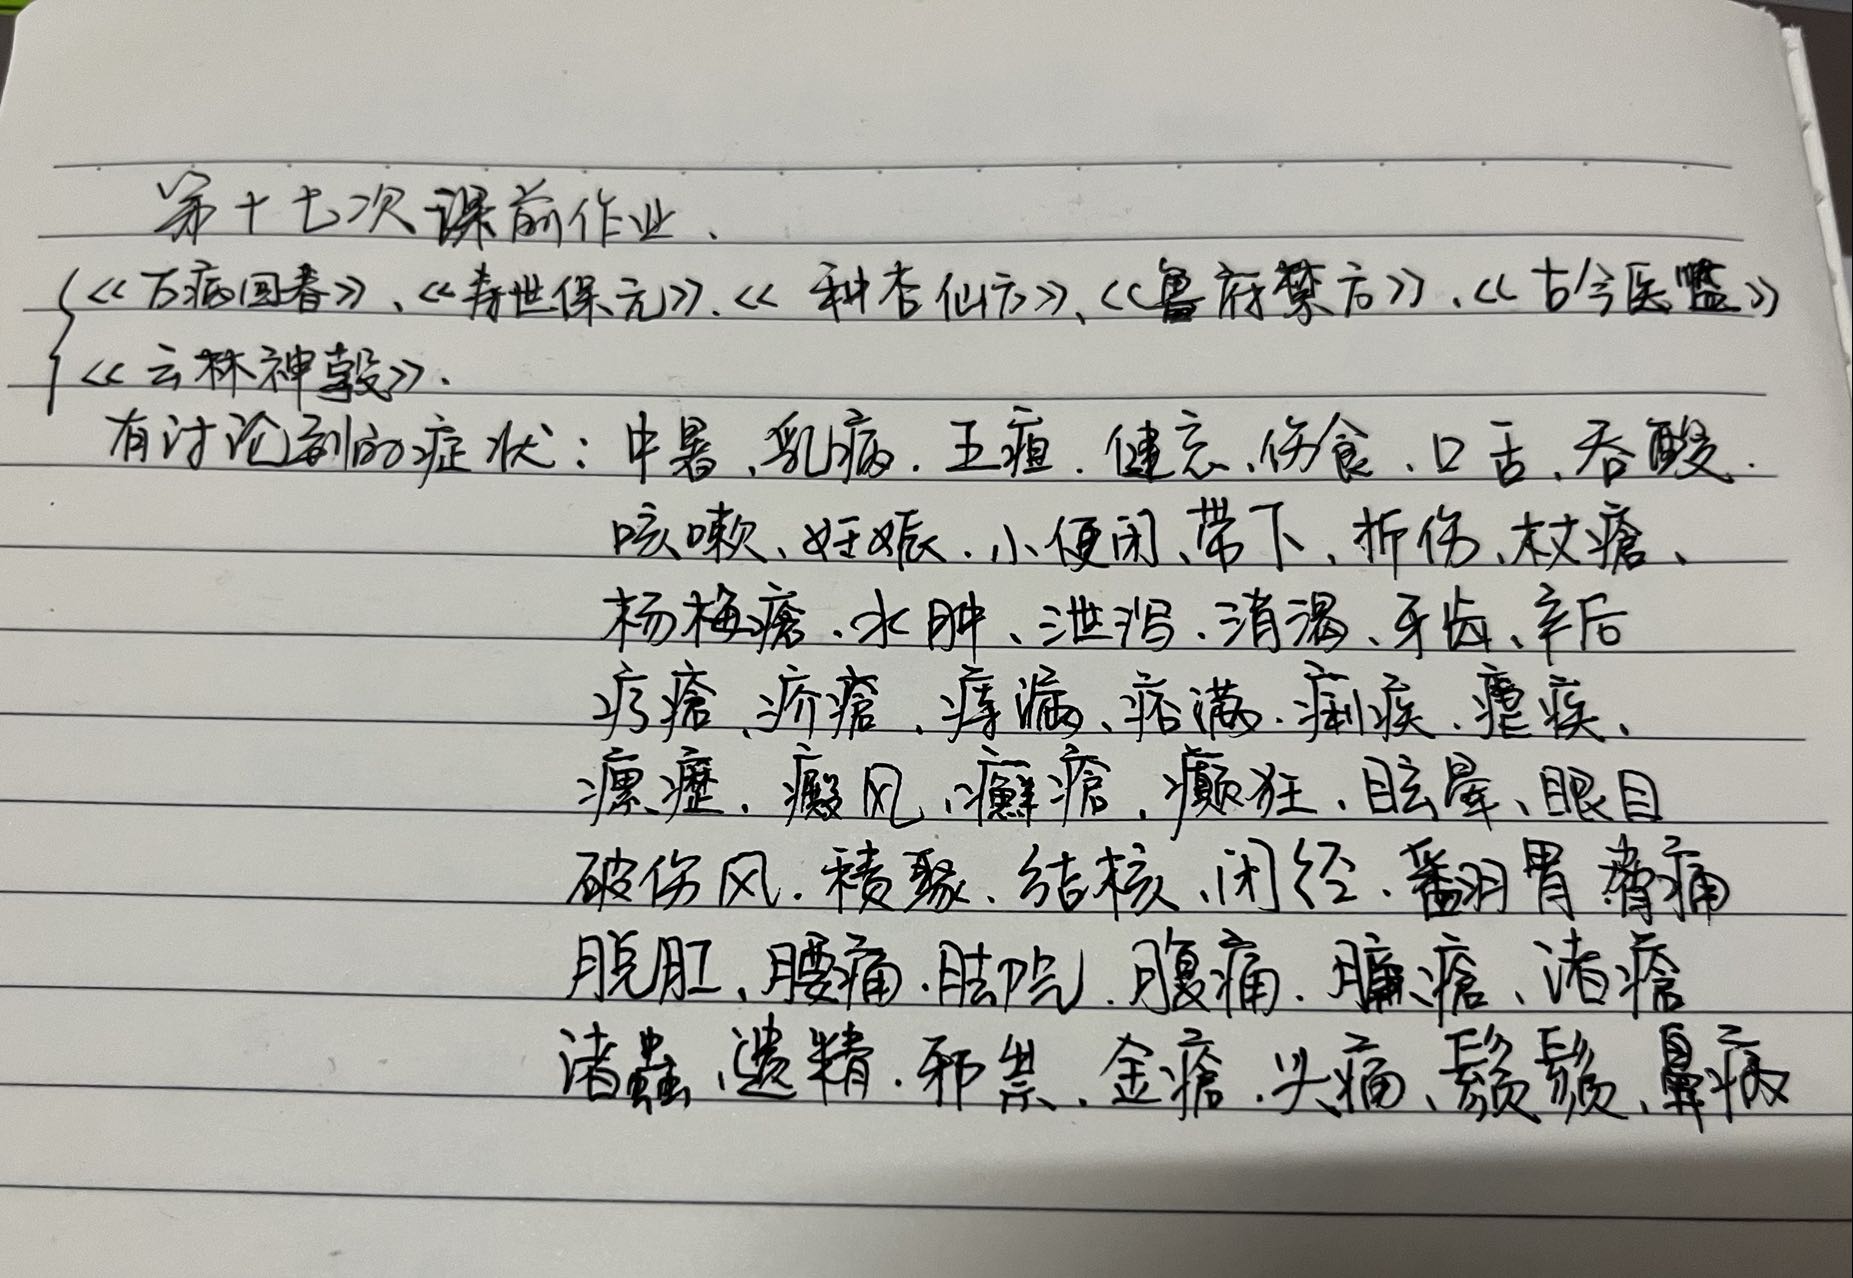 第十七次课前作业.
《万病回春》、《寿世保元》.《种杏仙方》、《鲁府禁方》.《古今医鑑》
《云林神彀》.
有讨论到的症状：中暑、乳病.五疸.健忘、伤食、口舌、吞酸.
咳嗽、妊娠.小便闭、带下、折伤、杖瘡、
杨梅瘡.水肿、泄泻.消渴、牙齿、产后
疔瘡、疥瘡、痔漏、痞满.痢疾.瘧疾、
瘰癧.癜风、癬瘡.癫狂、眩晕、眼目
破伤风.積聚、结核、闭经.翻胃 脅痛
脱肛、腰痛.腹痛.臁瘡、诸瘡
诸蟲、遗精.邪祟、金瘡.头痛、鬚髮、鼻病